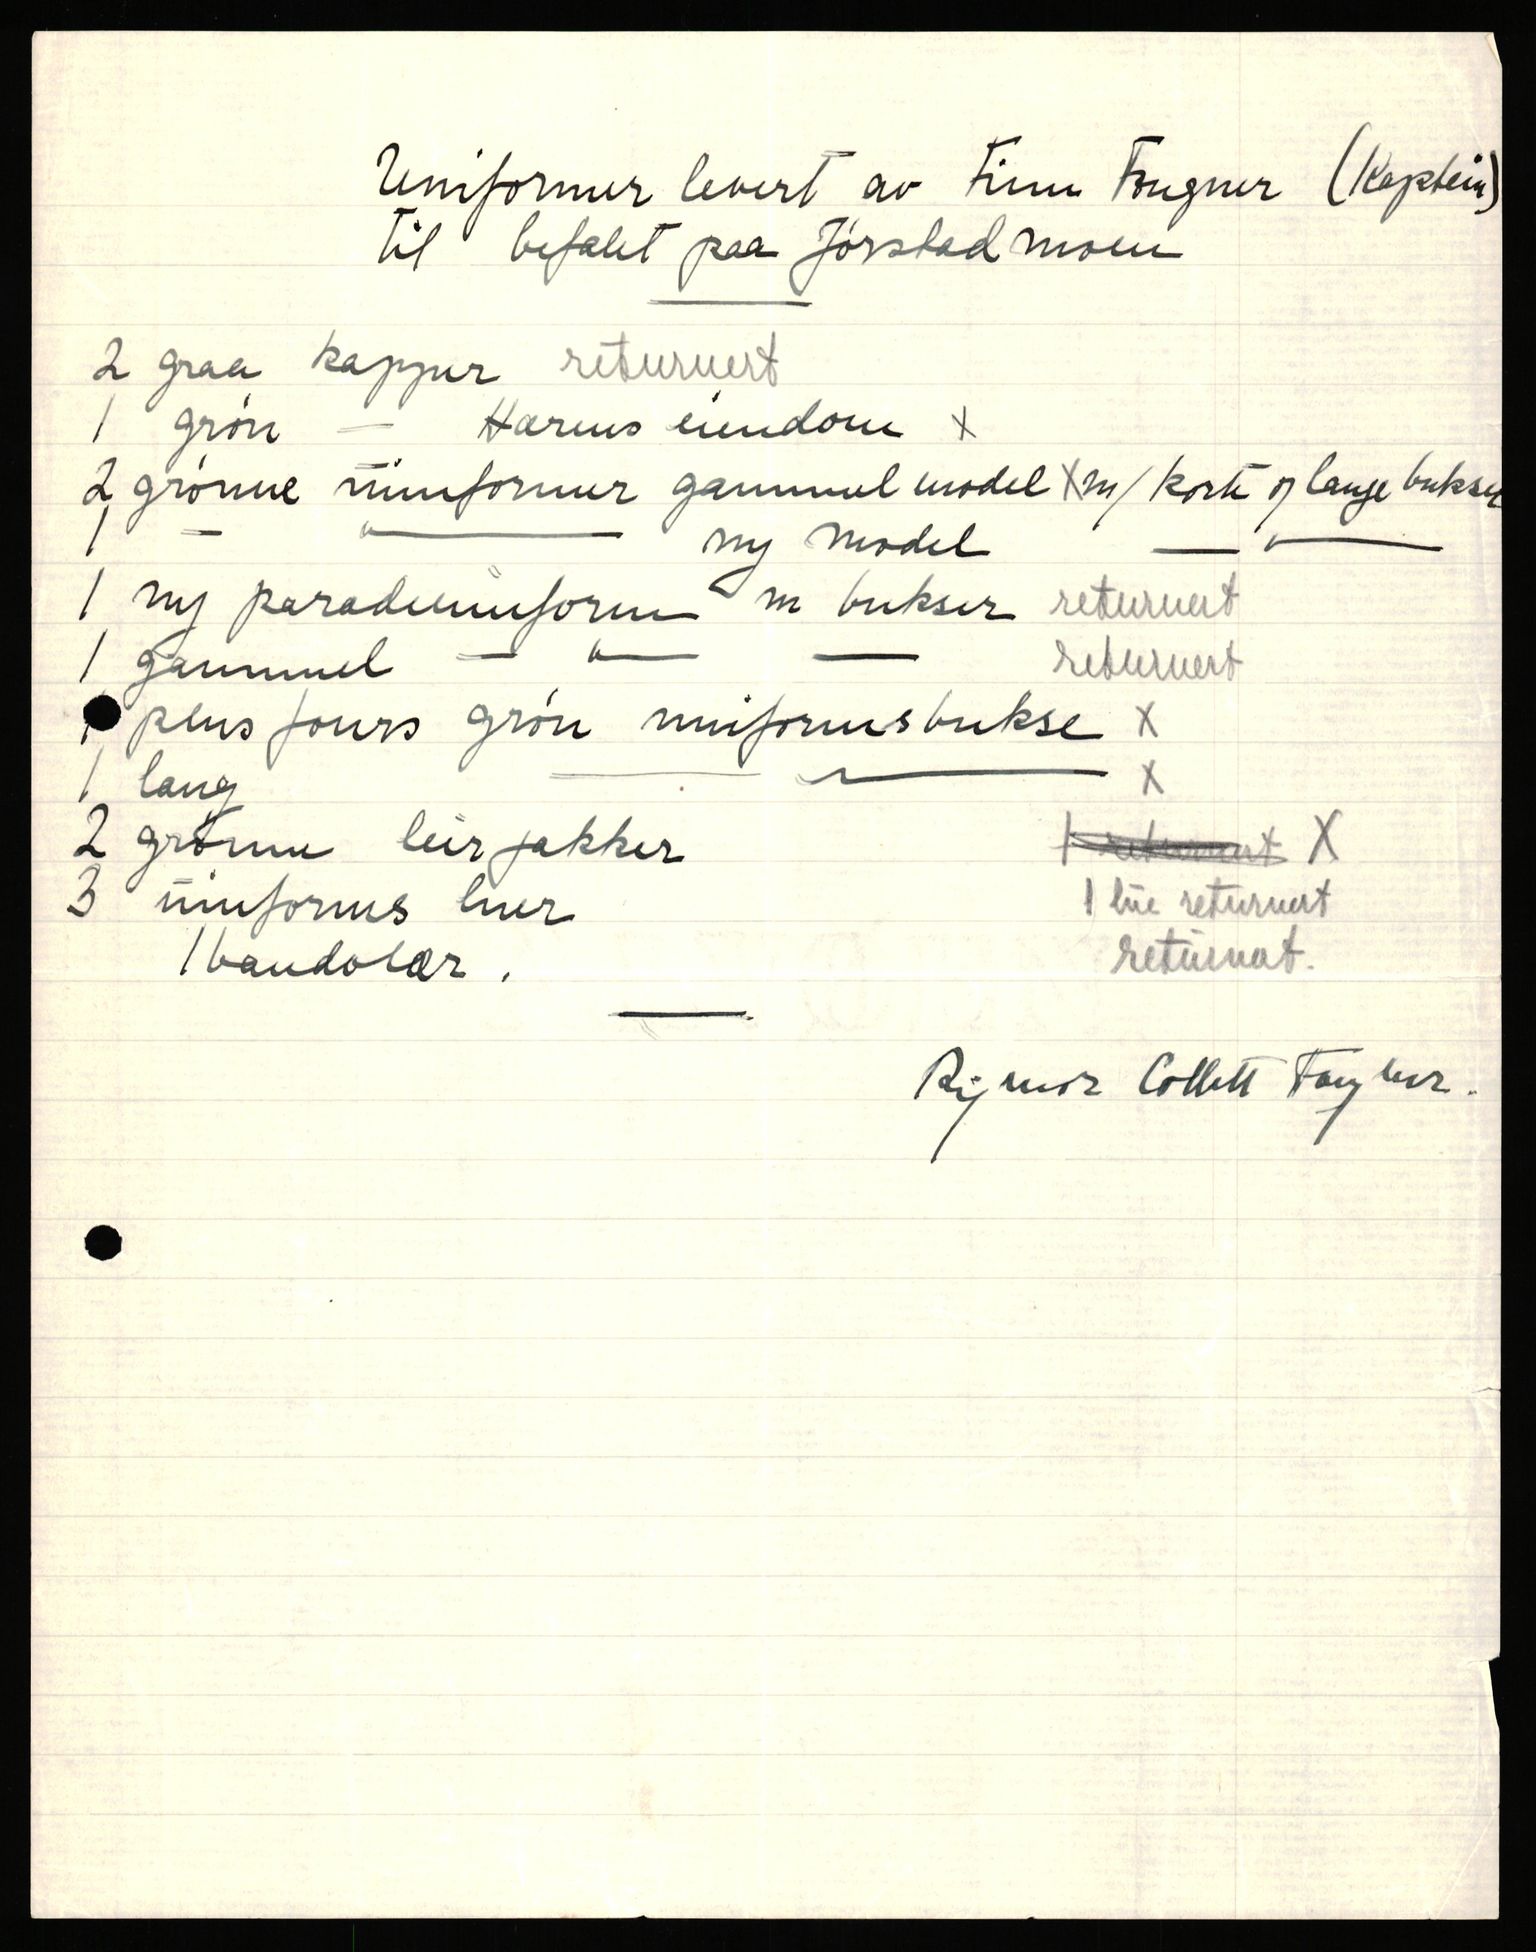 Uniformer levert av Finn Fougner (Kaptein)
til befalet paa Jørstadmoen
2 graa kapper returnert
1 grøn — Hærens eiendom x
2 grønne uniformer gammel model X m/ korte og lange bukser
1 — " — ny model — " —
1 ny paradeuniform m bukser returnert
1 gammel — " — — returnert
1 plus fours grøn uniformsbukse x
1 lang — " — x
2 grønne leirjakker 1 returnert X
3 uniforms luer 1 lue returnert
1 bandolær. returnert.
Rigmor Collett Fougner.